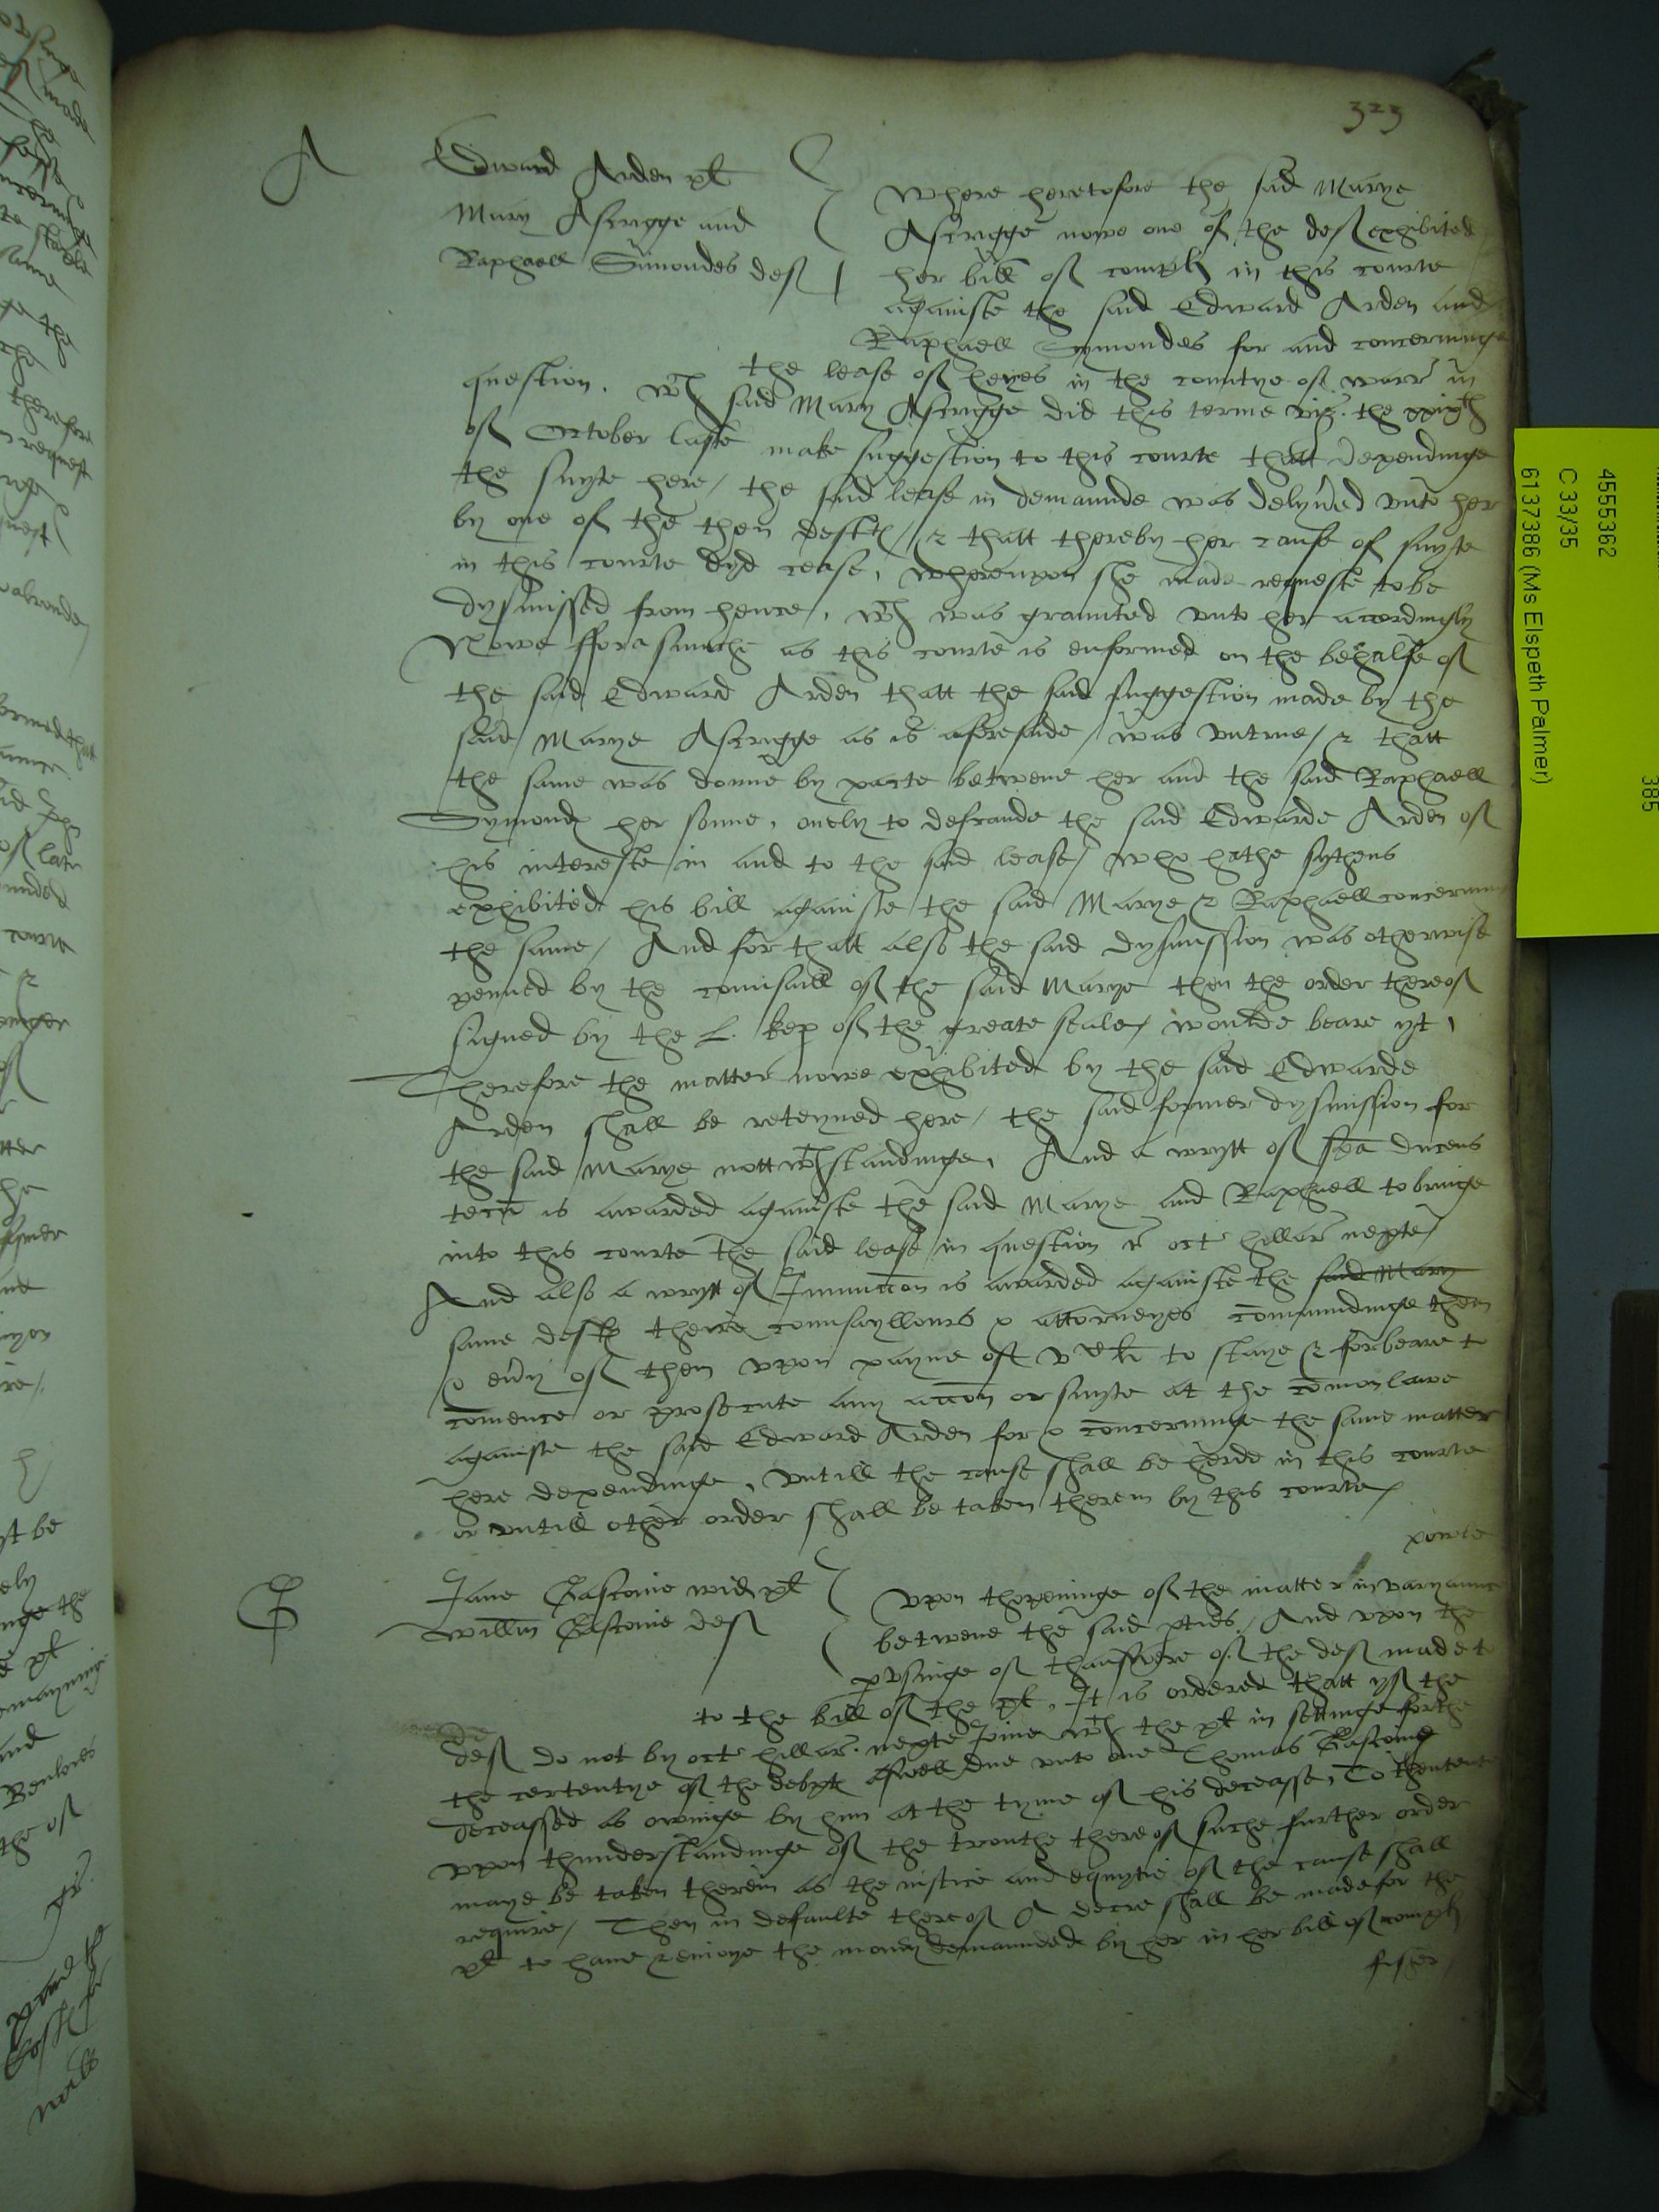 323
A
Edward Arden pl
Mary Ascrigge and
Raphaell Simondes def
Where heretofore the said Marye
Ascrigge nowe one of the def exhibited
her bill of compl in this courte
againste the said Edward Arden and
Raphaell Symondes for and concerninge
the lease of heyes in the countye of warr in
question. wch said Mary Ascrigge did this terme viz. the
of October laste make suggestion to this courte thatt dependinge
the suyte here / the said lease in demaunde was delyvred unto her
by one of the then deftes / & thatt thereby her cause of suyte
in this courte dyd cease, whereupon she made requeste to be
dysmissed from hence, wch was graunted unto her accordingly
Nowe fforasmuche as this courte is enformed on the behalfe of
the said Edward Arden thatt the said suggestion made by the
said Marye Ascrigge as is aforesaide / was untrue / & thatt
the same was donne by pacte betwene her and the said Raphaell
Symondes her sonne, onely to defraude the said Edwarde Arden of
his intereste in and to the said lease / who hathe sythens
exhibited his bill againste the said Marye & Raphaell concerninge
the same / And for thatt also the said dysmission was otherwise
penned by the counsaill of the said Marye then the order thereof
signed by the L. kep of the greate seale / woulde beare yt,
Therefore the matter nowe exhibited by the said Edwarde
Arden shall be reteyned here / the said former dysmission for
the said Marye nott wthstandinge, And a wrytt of sba ducens
tecu is awarded againste the said Marye and Raphaell to bringe
into this courte the said lease in question oct hillar nexte /
And also a wrytt of Iniunccon is awarded againste the said Mary
same deftes theire counsayllours & attorneyes commaundinge them
& evry of them upon payne of vc li to staye & forbeare to
comence or prosecute any accon or suyte at the comon lawe
againste the said Edward Arden for & concerninge the same matter
here dependinge, untill the cause shall be herde in this courte
or untill other order shall be taken therein by this courte /
powle
G
Jane Gascoine wid pl
Willm Gascoine def
Upon thopeninge of the matter in varyaunce
betwene the said pties / And upon the
pusinge of thanswere of the def made to
to the bill of the pl. It is ordered thatt yf the
def do not by oct hillar. nexte Joine wth the pl in settinge forthe
the certentye of the debtes aswell due unto one Thomas Gascoine
deceassed as owinge by him at the tyme of his deceasse, To thentent
upon thunderstandinge of the trouthe thereof suche further order
maye be taken therein as the iustice and equytie of the cause shall
require / Then in defaulte thereof A decre shall be made for the
pl to have & enioye the money demaunded by her in her bill of compl
fisher
4555362
C 33/35
6137386 (Ms Elspeth Palmer)
385